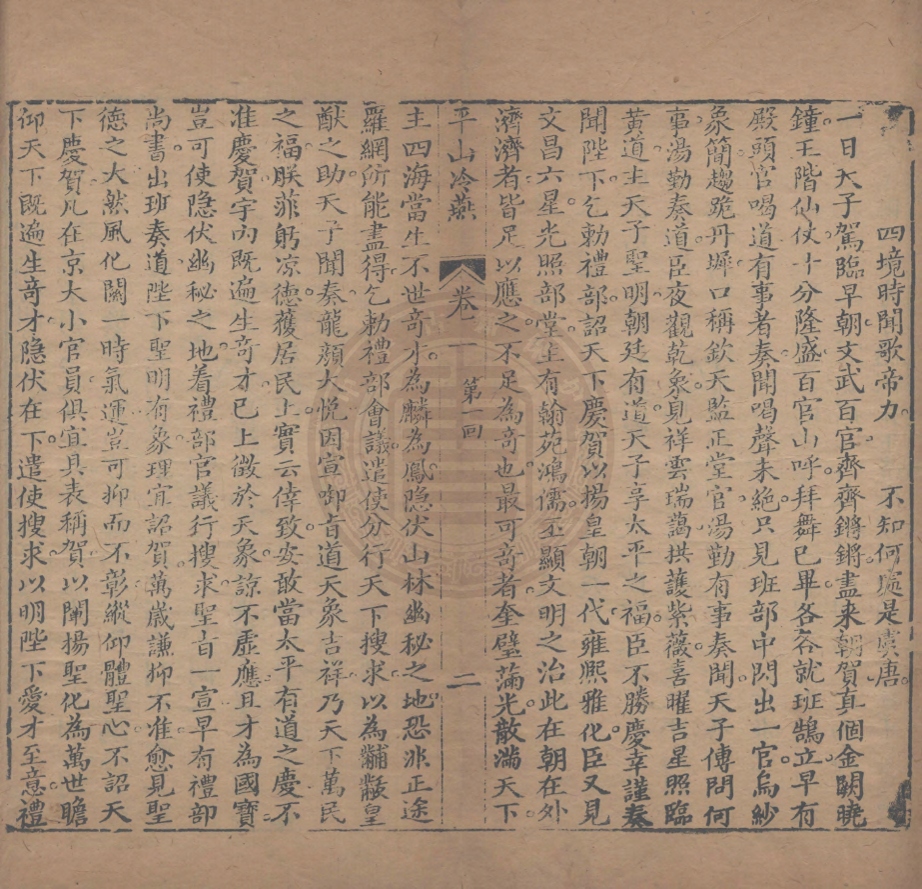 四境時聞歌帝力　不知何處是虞唐
一日天子駕臨早朝文武百官齊齊鏘鏘盡来朝賀真個金闕曉
鐘玉階仙仗十分隆盛百官山呼拜舞已畢各各就班鵠立早有
殿頭官喝道有事者奏聞喝聲未絕只見班部中閃出一官烏紗
象簡趨跪丹墀口稱欽天監正堂官湯勤有事奏聞天子傳問何
事湯勤奏道臣夜觀乾象見祥雲瑞靄拱護紫薇喜曜吉星照臨
黄道主天子聖明朝廷有道天子享太平之福臣不勝慶幸謹奏
聞陛下乞勅禮部詔天下慶賀以揚皇朝一代雍熙雅化臣又見
文昌六星光照部堂主有翰苑鴻儒丕顯文明之治此在朝在外
濟濟者皆足以應之不足為奇也最可奇者奎璧流光散滿天下
平山冷燕　卷一　第一回　二
主四海當生不世奇才為麟為鳳隐伏山林幽秘之地恐非正途
羅網所能盡得乞勅禮部會議遣使分行天下搜求以為黼黻皇
猷之助天子聞奏龍顔大悅因宣御旨道天象吉祥乃天下萬民
之福朕菲躬凉德獲居民上實云倖致安敢當太平有道之慶不
准慶賀宇内既遍生奇才已上徵於天象諒不虚應且才為國寶
豈可使隐伏幽秘之地着禮部官議行搜求聖旨一宣早有禮部
尚書出班奏道陛下聖明有象理宜詔賀萬歲謙抑不准愈見聖
德之大然風化關一時氣運豈可抑而不彰縱仰體聖心不詔天
下慶賀凡在京大小官員俱宜具表稱賀以闡揚聖化為萬世瞻
仰天下既遍生奇才隐伏在下遣使搜求以明陛下愛才至意禮